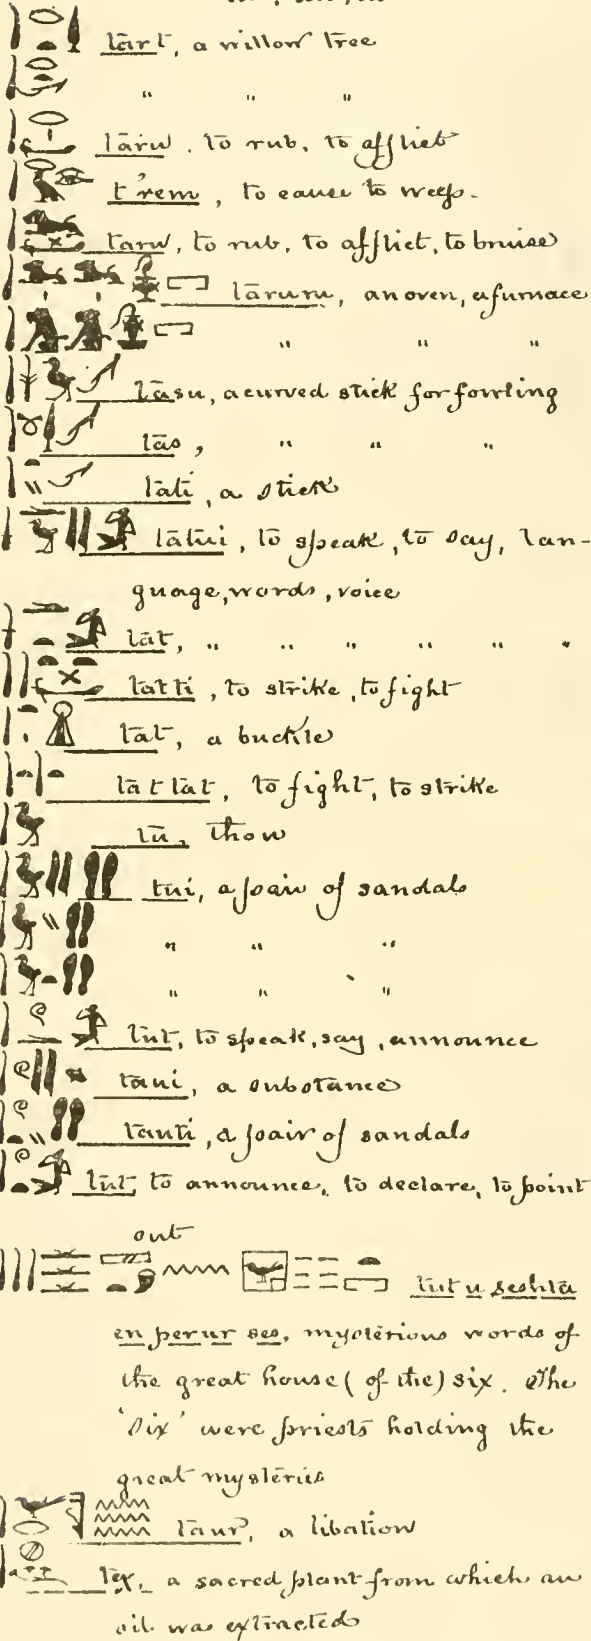 tart, a willow tree
" " "
taru, to rub, to afflict
t'rem, to cause to weep.
taru, to rub, to afflict, to bruise
taruru, an oven, a furnace
" " "
tasu, a curved stick for fowling
tas, " " "
tati, a stick
tatui, to speak, to say, lan-
guage, words, voice
tat, " " " " " "
tatti, to strike, to fight
tat, a buckle
tattat, to fight, to strike
tu, thou
tui, a pair of sandals
" " "
" " "
tut, to speak, say, announce
taui, a substance
tauti, a pair of sandals
tut, to announce, to declare, to point
out
tut u seshta
en per ur ses, mysterious words of
the great house (of the) six. The
'Six' were priests holding the
great mysteries
taur, a libation
tex, a sacred plant from which an
oil was extracted